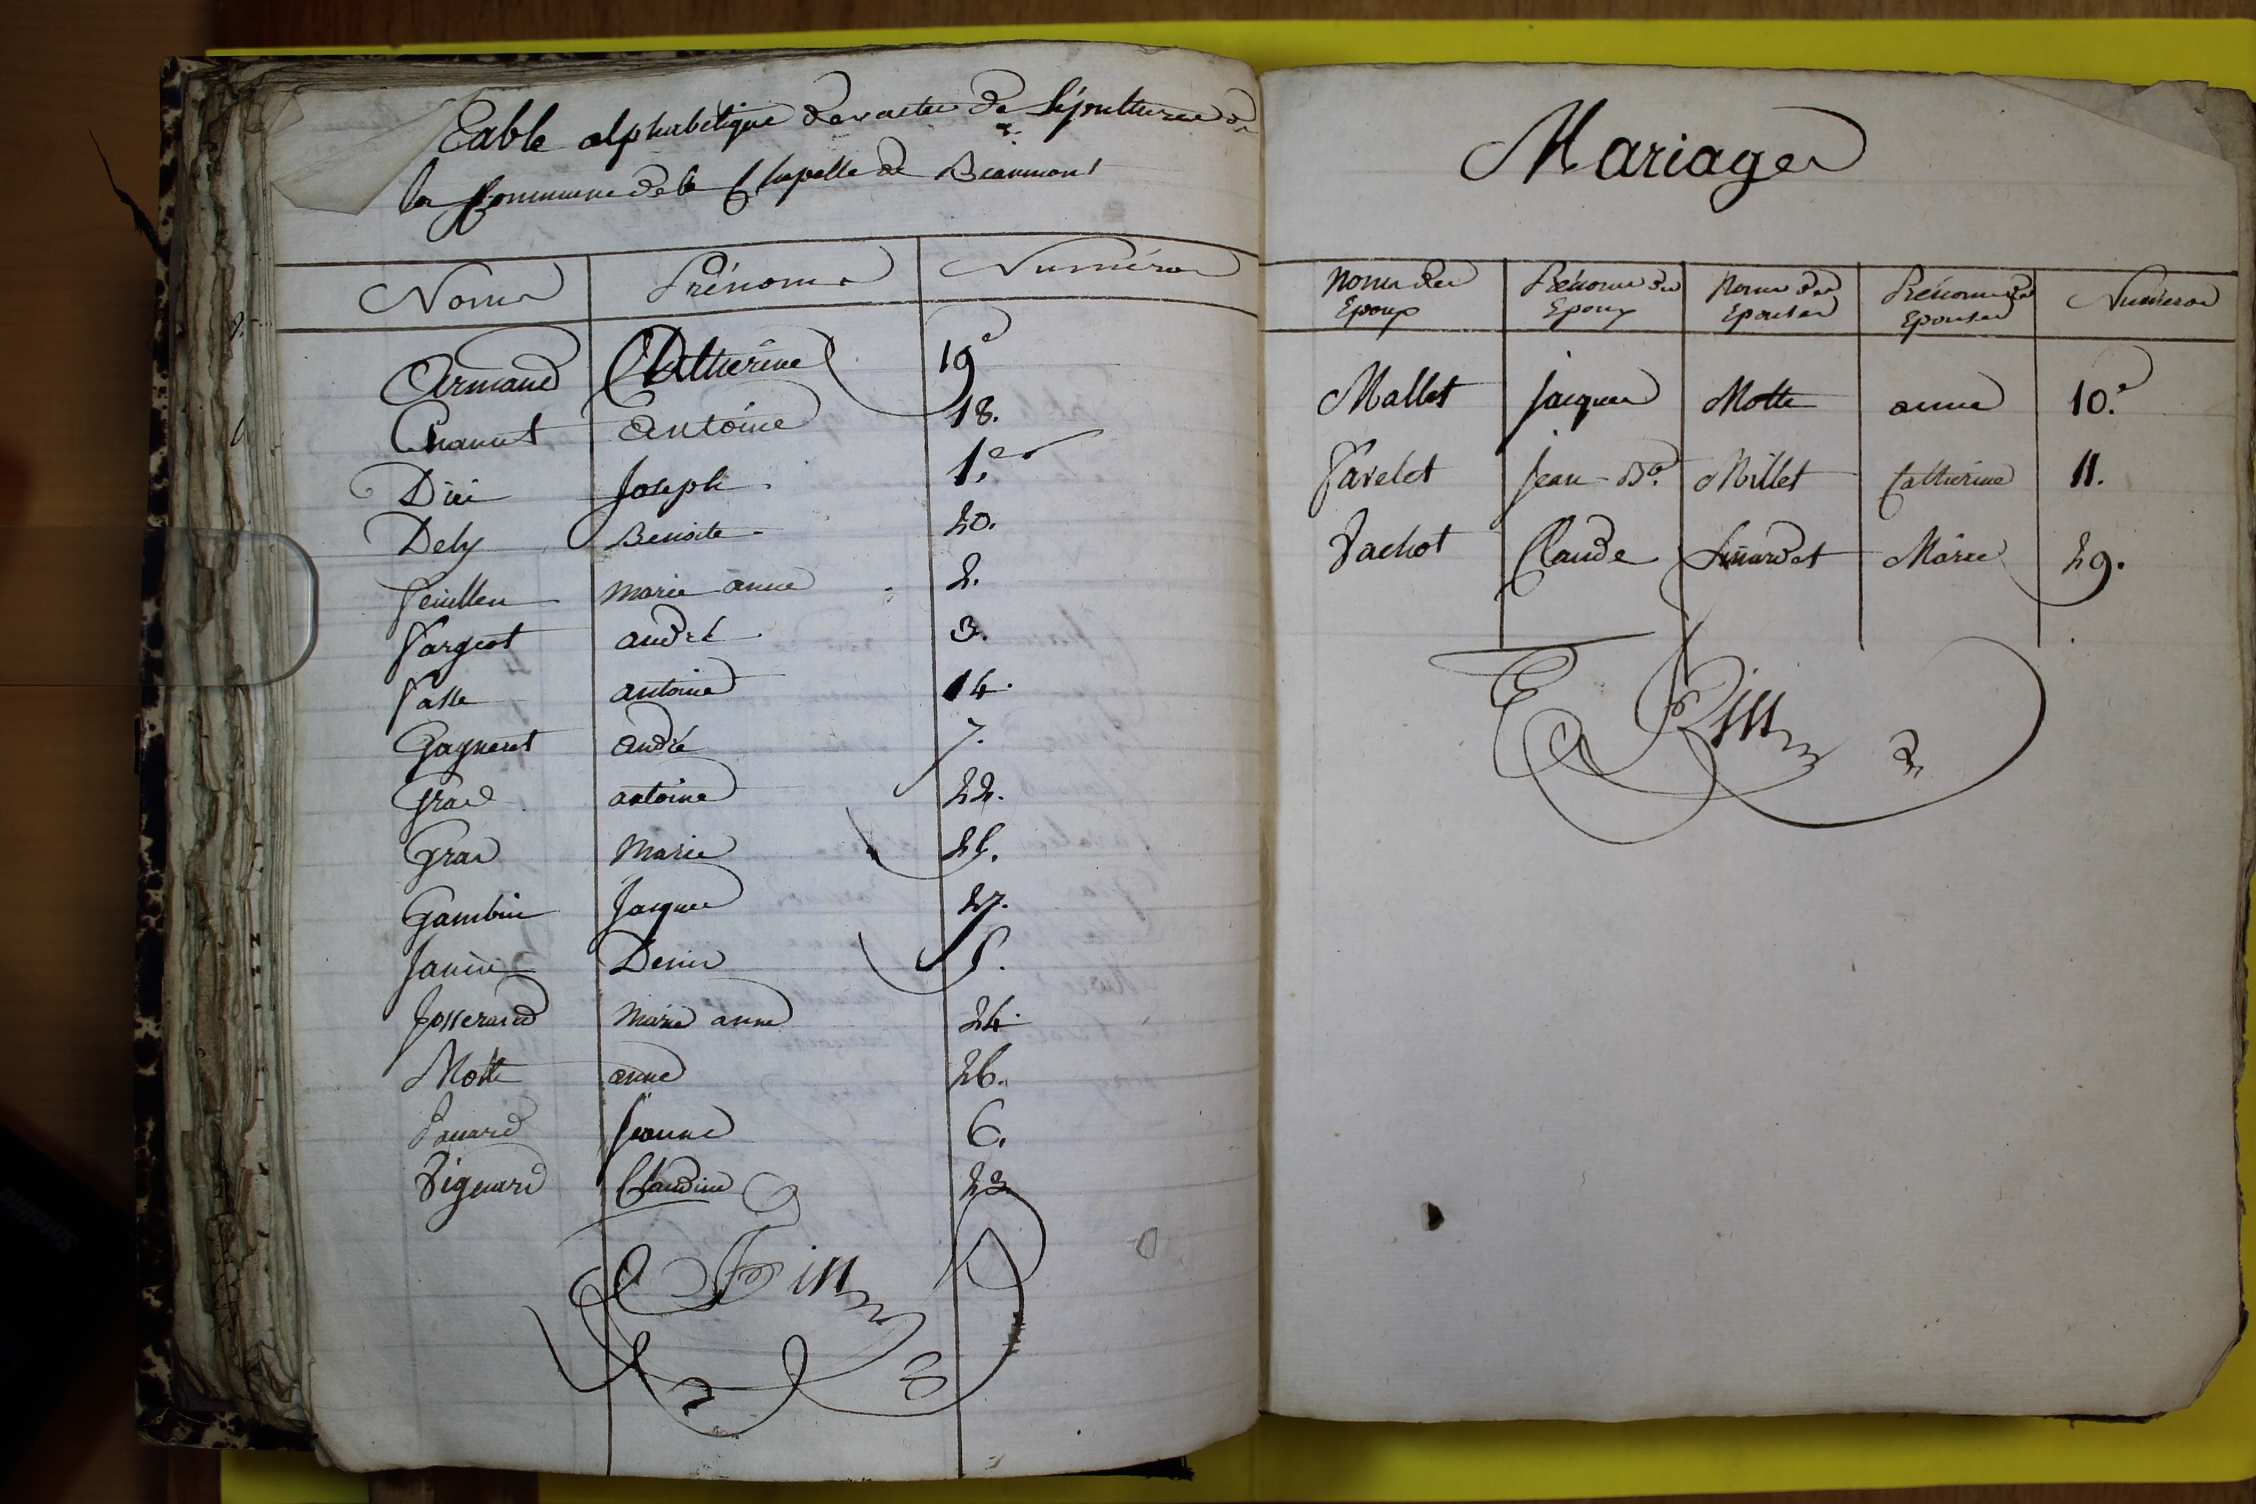 Table alphabétique des actes de Sépultures de
la Commune de la Chapelle de Beaumont
Noms Prénoms Numéros
Armand Catherine 19e
Chanut Antoine 18.
Dici Joseph 1.er
Dely Benoite 20.
Feuillen marie anne 2.
Fargeot andré 3.
Fasse antoine 14.
Gagneret andré 7.
Gras antoine 22.
Gras Marie 25.
Gambin Jacques 27.
Janin Denis 5.
Josserand Marie anne 24.
Motte anne 26.
Jeanne 6.
Vigneard Claudine 23.
Mariages
Noms des Epoux Prénoms des Epoux Noms des Epouses Prénoms des Epouses Numéros
Mallet jacques Motte anne 10.e
Favelet jean-Bte. Millet Catherine 11.
Vachot Claude Marie 29.